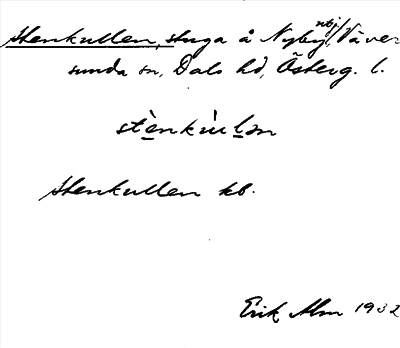 Stenkullen, stuga å Nyby utj., Väver-
sunda sn, Dals hd, Österg. l.
stènkùlən
Stenkullen kb.
Erik Alm 1932